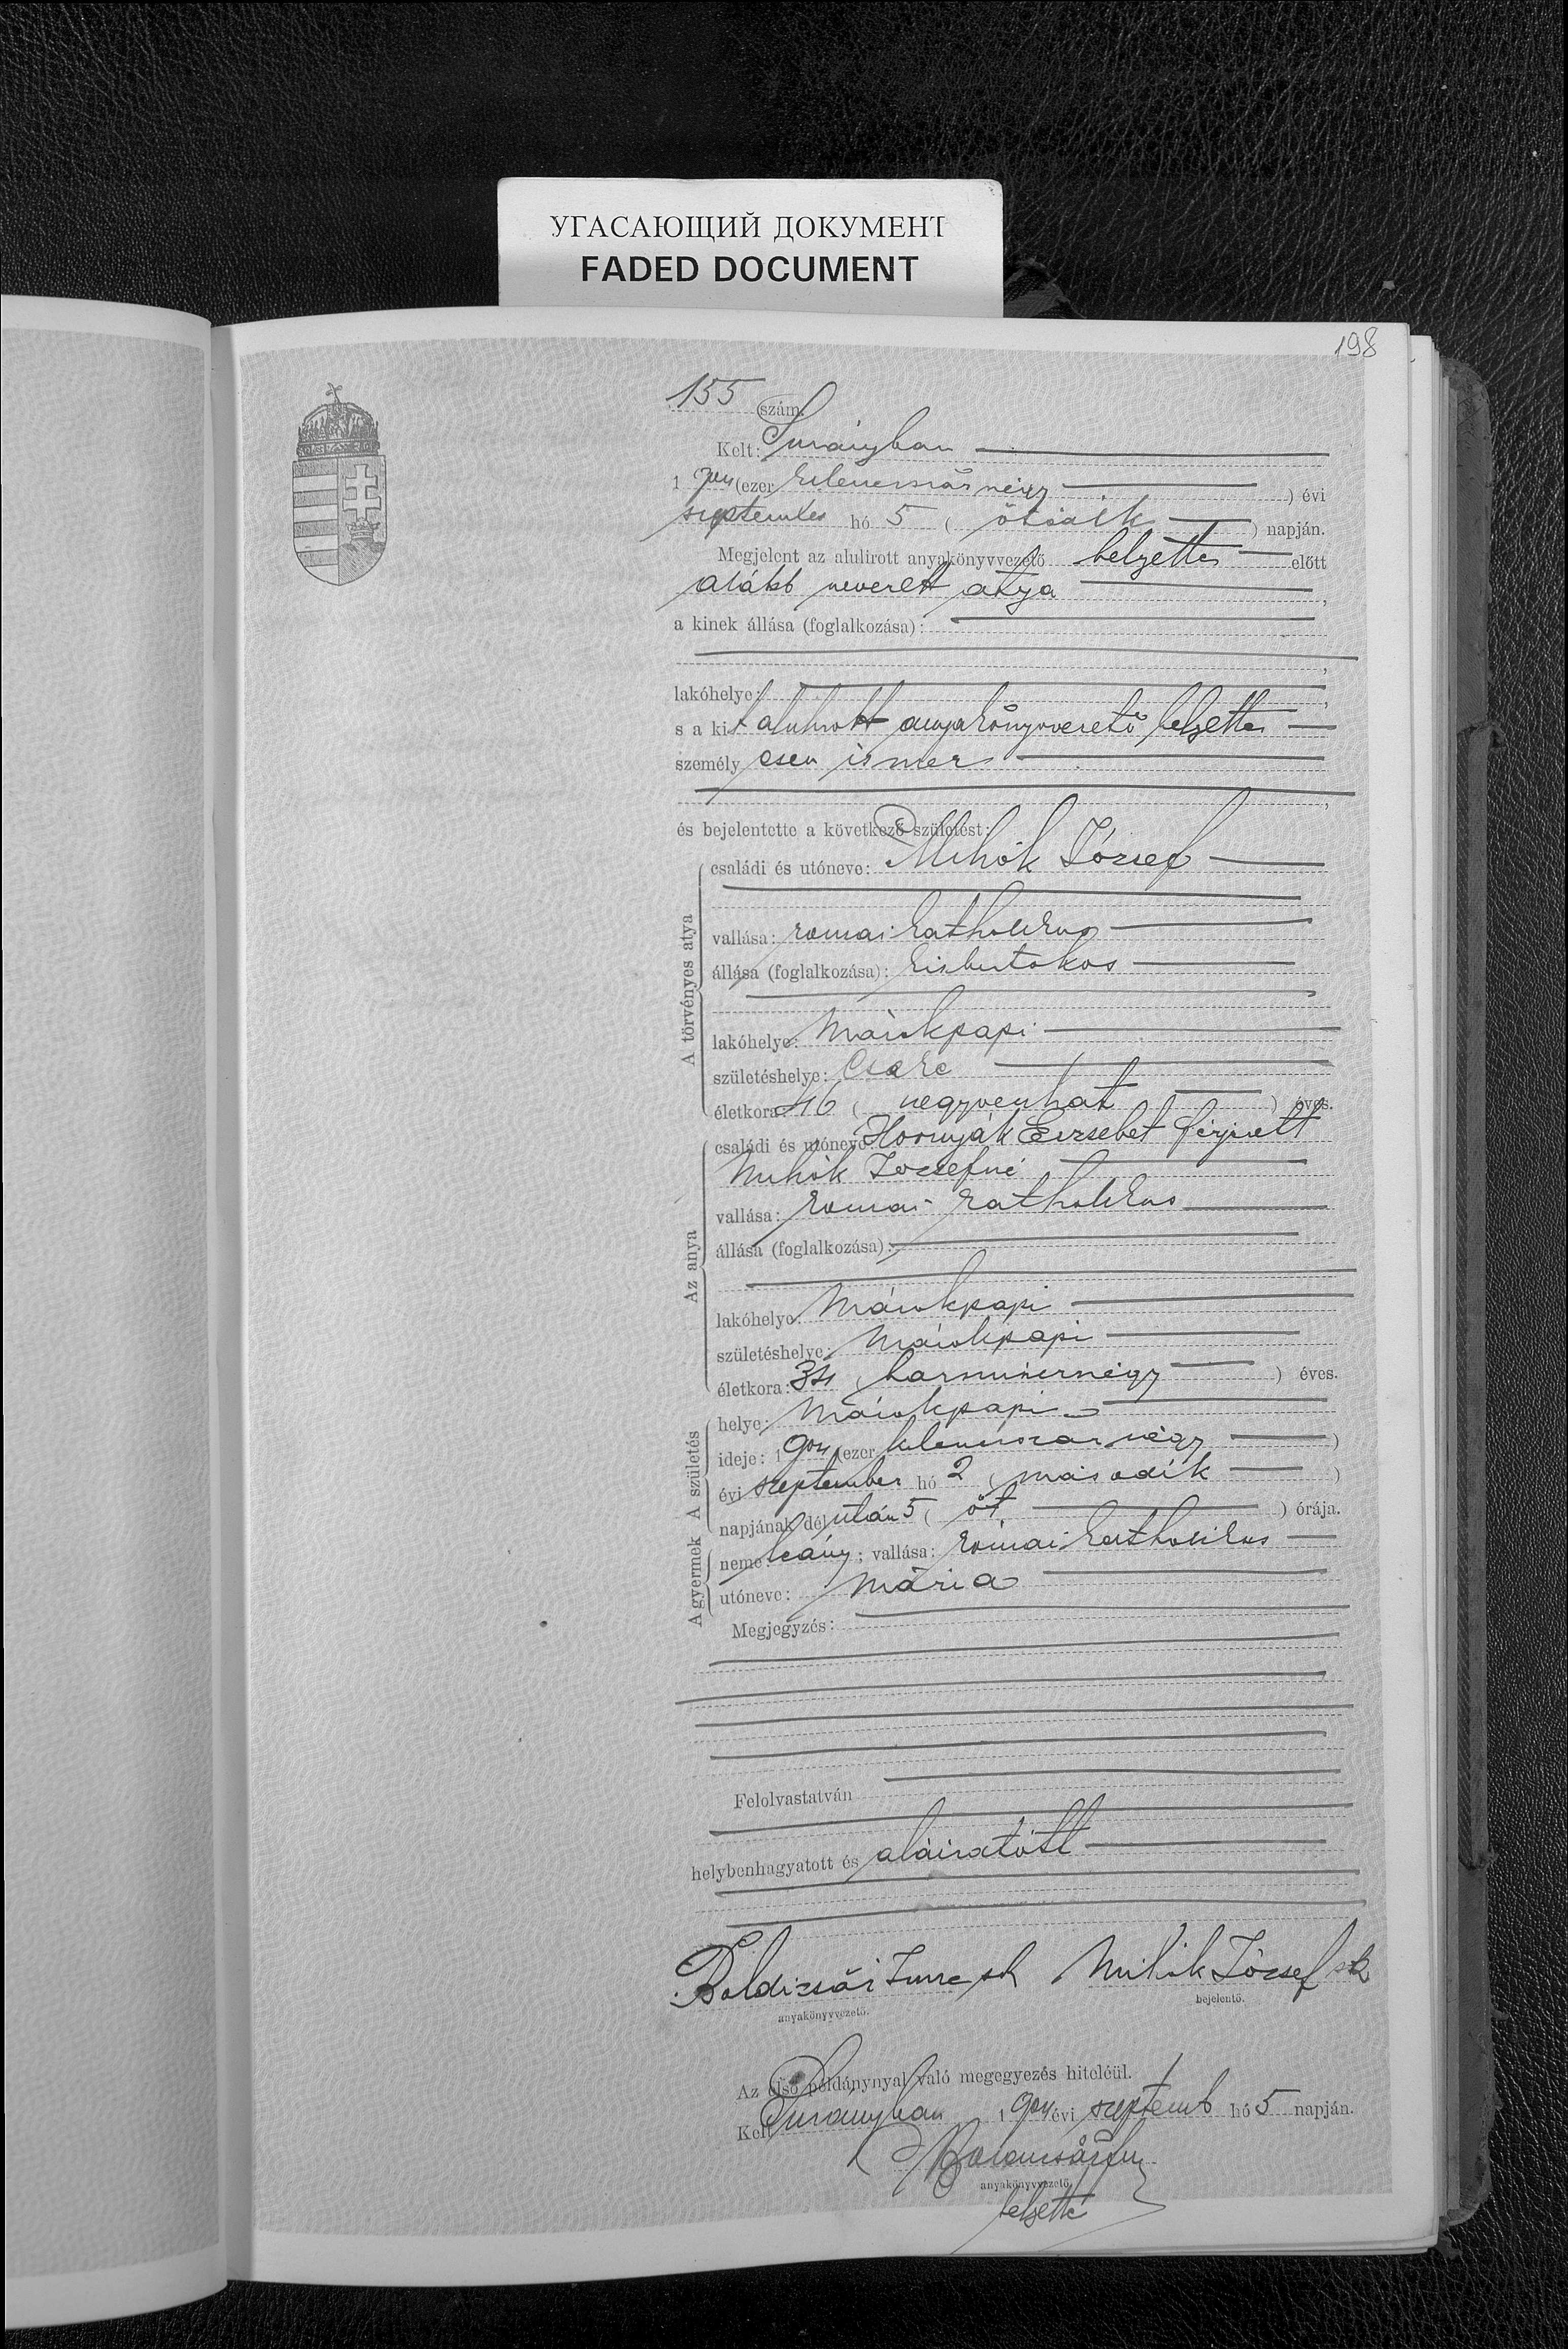 УГАСАЮЩИЙ ДОКУМЕНТ
FADED DOCUMENT
198
155 szám.
Kelt: Surányban
1904 (ezer kilencszáz négy) évi
september hó 5 (ötödik) napján.
Megjelent az alulirott anyakönyvvezető helyettes előtt
alább nevezett atya,
a kinek állása (foglalkozása):
,
lakóhelye: ,
s a kit alulirott anyakönyvvezető helyettes
személyesen ismer
,
és bejelentette a következő születést:
A törvényes atya
családi és utóneve: Mihók József
vallása: romai katholikus
állása (foglalkozása): kisbirtokos
lakóhelye: Márokpapi
születéshelye: Cseke
életkora: 46 (negyvenhat) éves.
Az anya
családi és utóneve: Hornyák Erzsebet férjezett
Mihók Józsefné
vallása: romai katholikus
állása (foglalkozása):
lakóhelye: Márokpapi
születéshelye: Márokpapi
életkora: 34 (harmincnégy) éves.
A születés
helye: Márokpapi
ideje: 1904 (ezer kilencszáz négy)
évi september hó 2 (második)
napjának dél után 5 (öt) órája.
A gyermek
neme: leány; vallása: római katholikus
utóneve: Mária
Megjegyzés:
Felolvastatván
helybenhagyatott és aláiratott
Boldizsár Imre sk Mihók József sk
anyakönyvvezető. bejelentő.
Az első példánynyal való megegyezés hiteléül.
Kelt Surányban 1904 évi septemb hó 5 napján.
anyakönyvvezető
helyettes